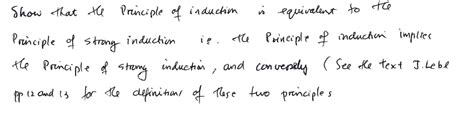 Show that the Principle of induction is equivalent to the
Principle of strong induction ie. the Principle of induction implies
the Principle of strong induction, and conversely (See the text J.Lebl
pp 12 and 13 for the definitions of these two principles